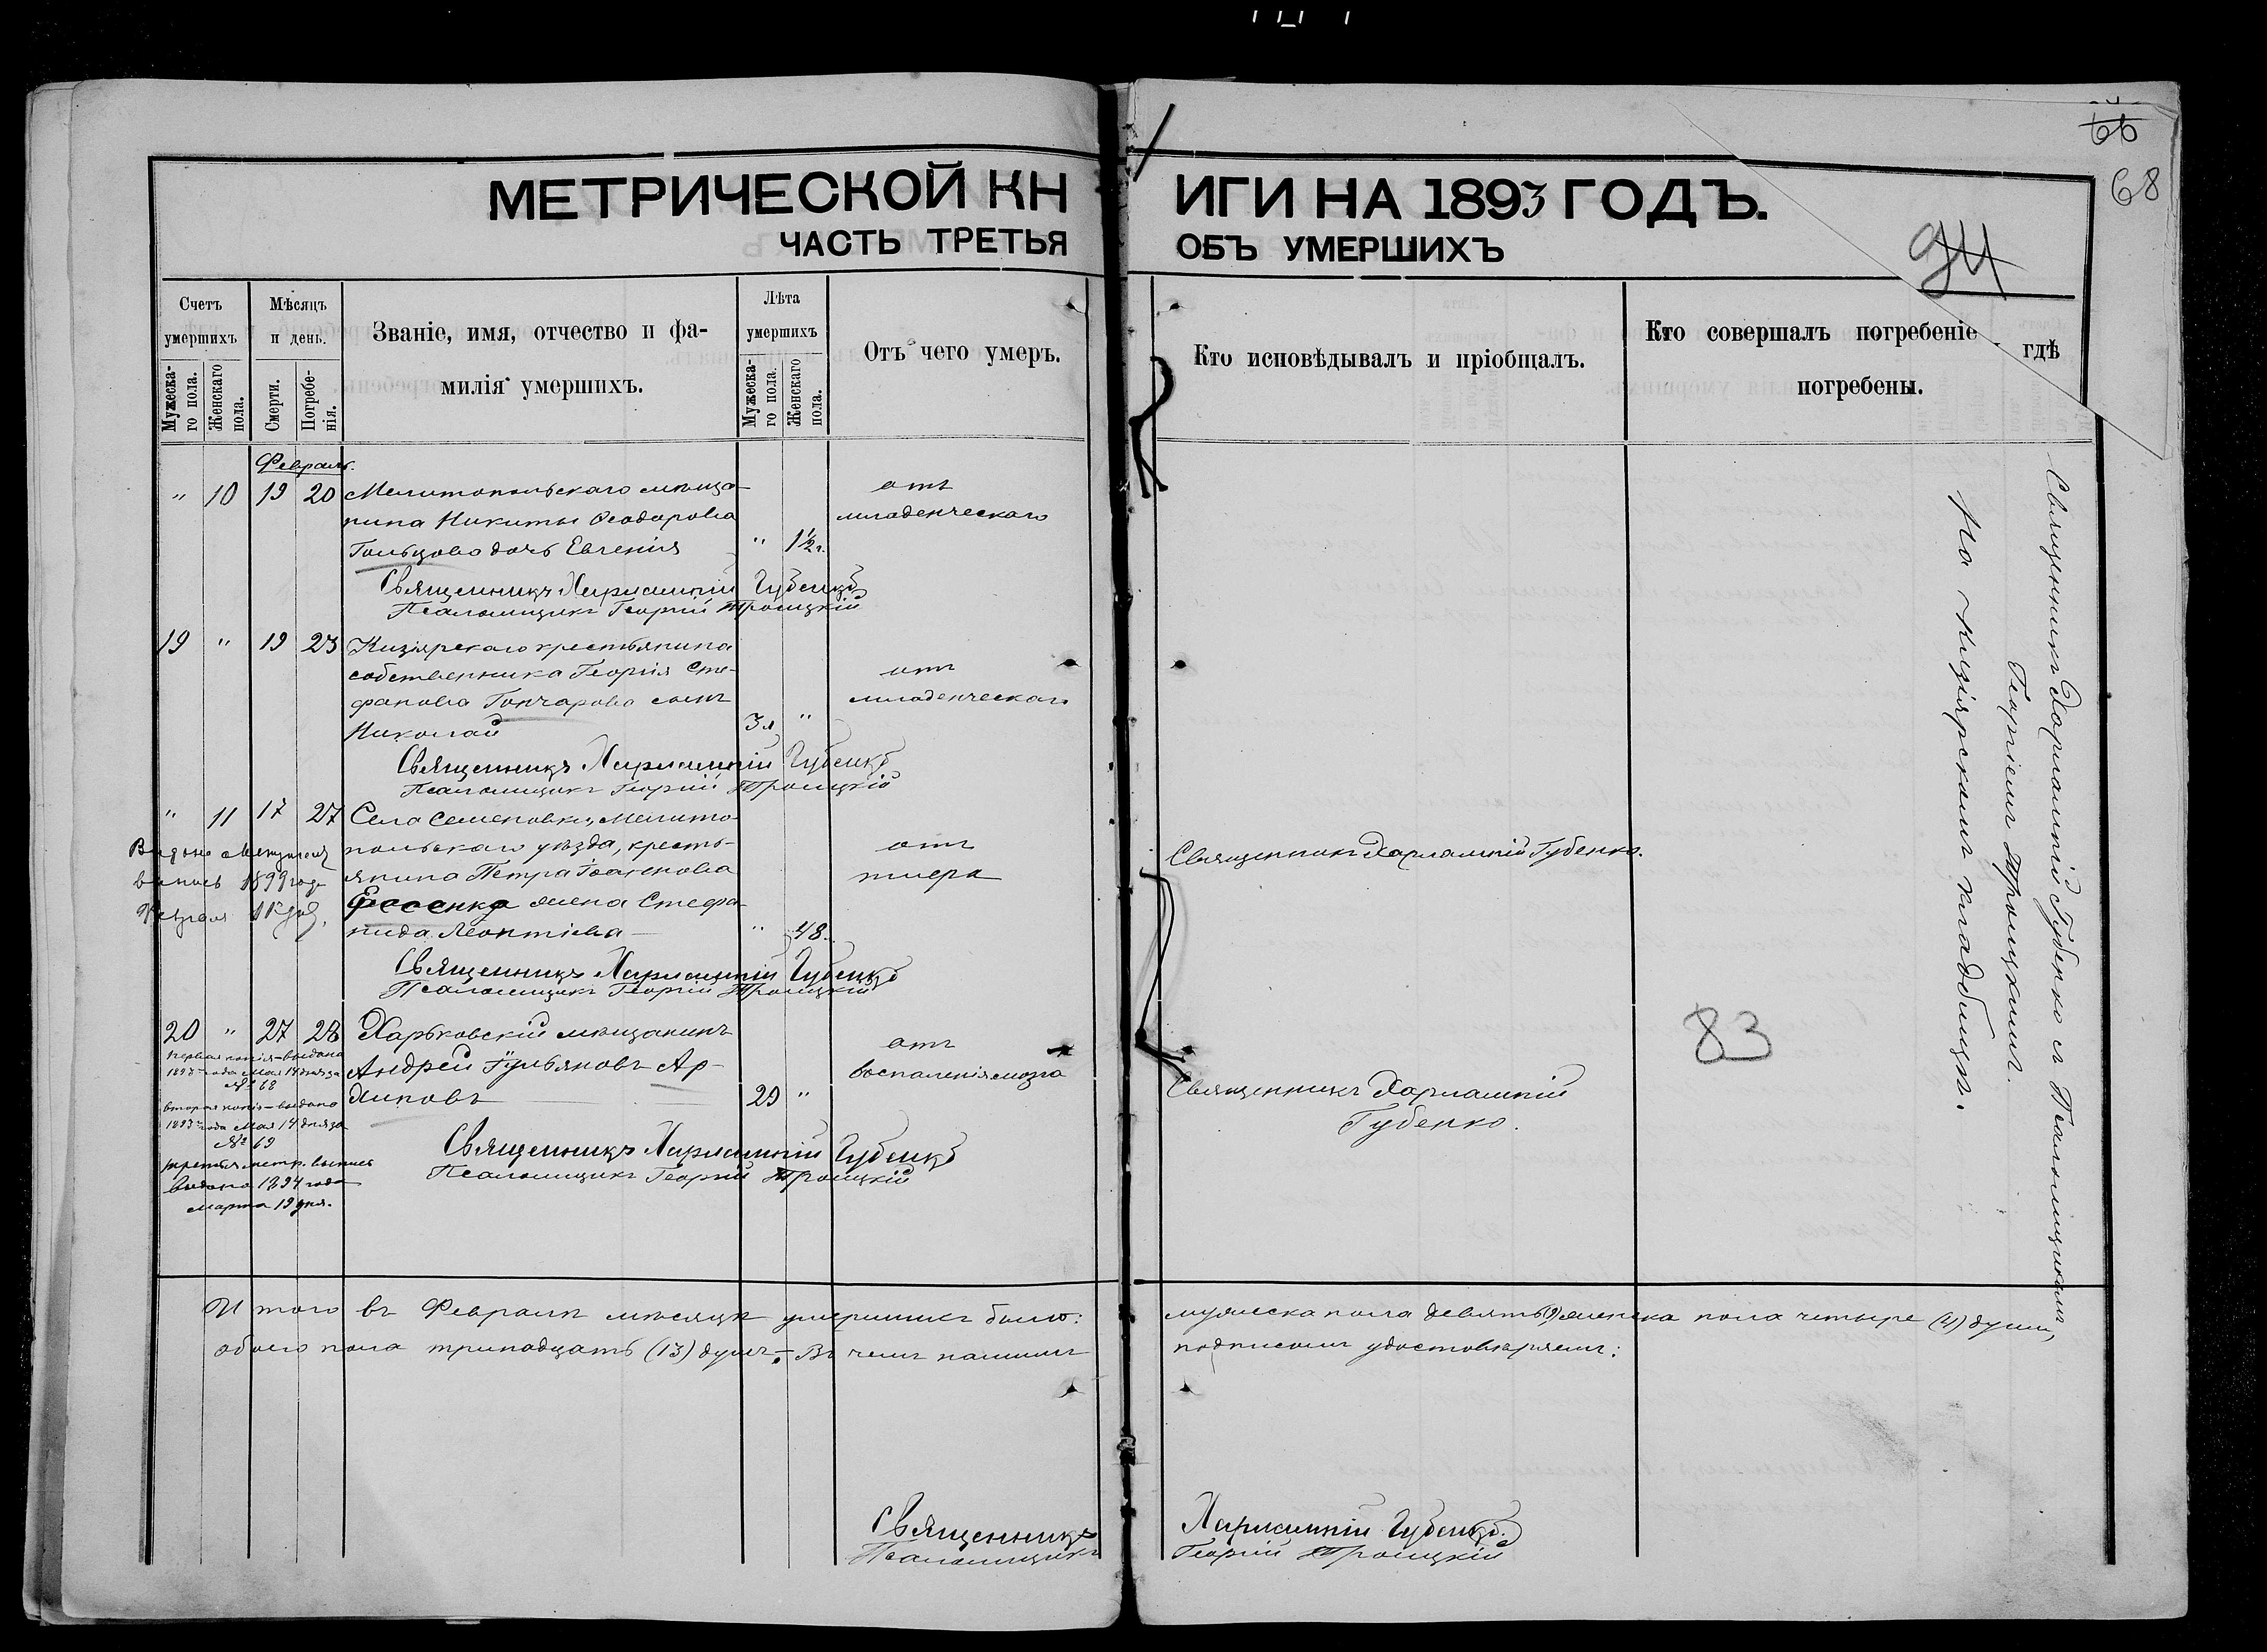 66
68
МЕТРИЧЕСКОЙ КНИГИ НА 1893 ГОДЪ.
ЧАСТЬ ТРЕТЬЯ ОБЪ УМЕРШИХЪ
94
Счетъ умершихъ
Мужескаго пола.
Женскаго пола.
Мѣсяцъ и день.
Смерти.
Погребенія.
Званіе, имя, отчество и фа-
милія умершихъ.
Лѣта умершихъ
Мужескаго пола.
Женскаго пола.
Отъ чего умеръ.
Кто исповѣдывалъ и пріобщалъ.
Кто совершалъ погребеніе
гдѣ
погребены.
Февраль.
" 10 19 20 Мелитопольскаго мѣща-
нина Никиты Ѳеодорова
Гольцова дочь Евгенія
" 1½ г.
отъ
младенческаго
Священникъ Харлампій Губенко
Псаломщикъ Георгій Троицкій
19 " 19 23 Кизіярскаго крестьянина
собственника Георгія Сте-
фанова Гончарова сынъ
Николай
3 л. "
отъ
младенческаго
Священникъ Харлампій Губенко
Псаломщикъ Георгій Троицкій
" 11 17 27 Села Семеновки, Мелито-
польскаго уѣзда, кресть-
янина Петра Іоаннова
Фесенко жена Стефа-
нида Леонтіева
" 48.
отъ
тифа
Священникъ Харлампій Губенко.
Священникъ Харлампій Губенко
Псаломщикъ Георгій Троицкій
20 " 27 28 Харьковскій мѣщанинъ
Андрей Гульяновъ Ар-
хиповъ
29 "
отъ
воспаленія мозга
Священникъ Харлампій
Губенко.
первая копія – выдана
1893 года Мая 14 дня за
№ 68
вторая копія – выдана
1893 года Мая 14 дня за
№ 69
третья метр. выпись
выдана 1894 года
марта 19 дня.
Священникъ Харлампій Губенко
Псаломщикъ Георгій Троицкій
83
Священникъ Харлампій Губенко съ Псаломщикомъ
Георгіемъ Троицкимъ.
На Кизіярскомъ кладбищѣ.
Итого въ Февралѣ мѣсяцѣ умершихъ было: мужеска пола девять (9), женска пола четыре (4) души,
обоего пола тринадцать (13) душъ. – Въ чемъ нашимъ подписомъ удостовѣряемъ:
Священникъ Харлампій Губенко.
Псаломщикъ Георгій Троицкій